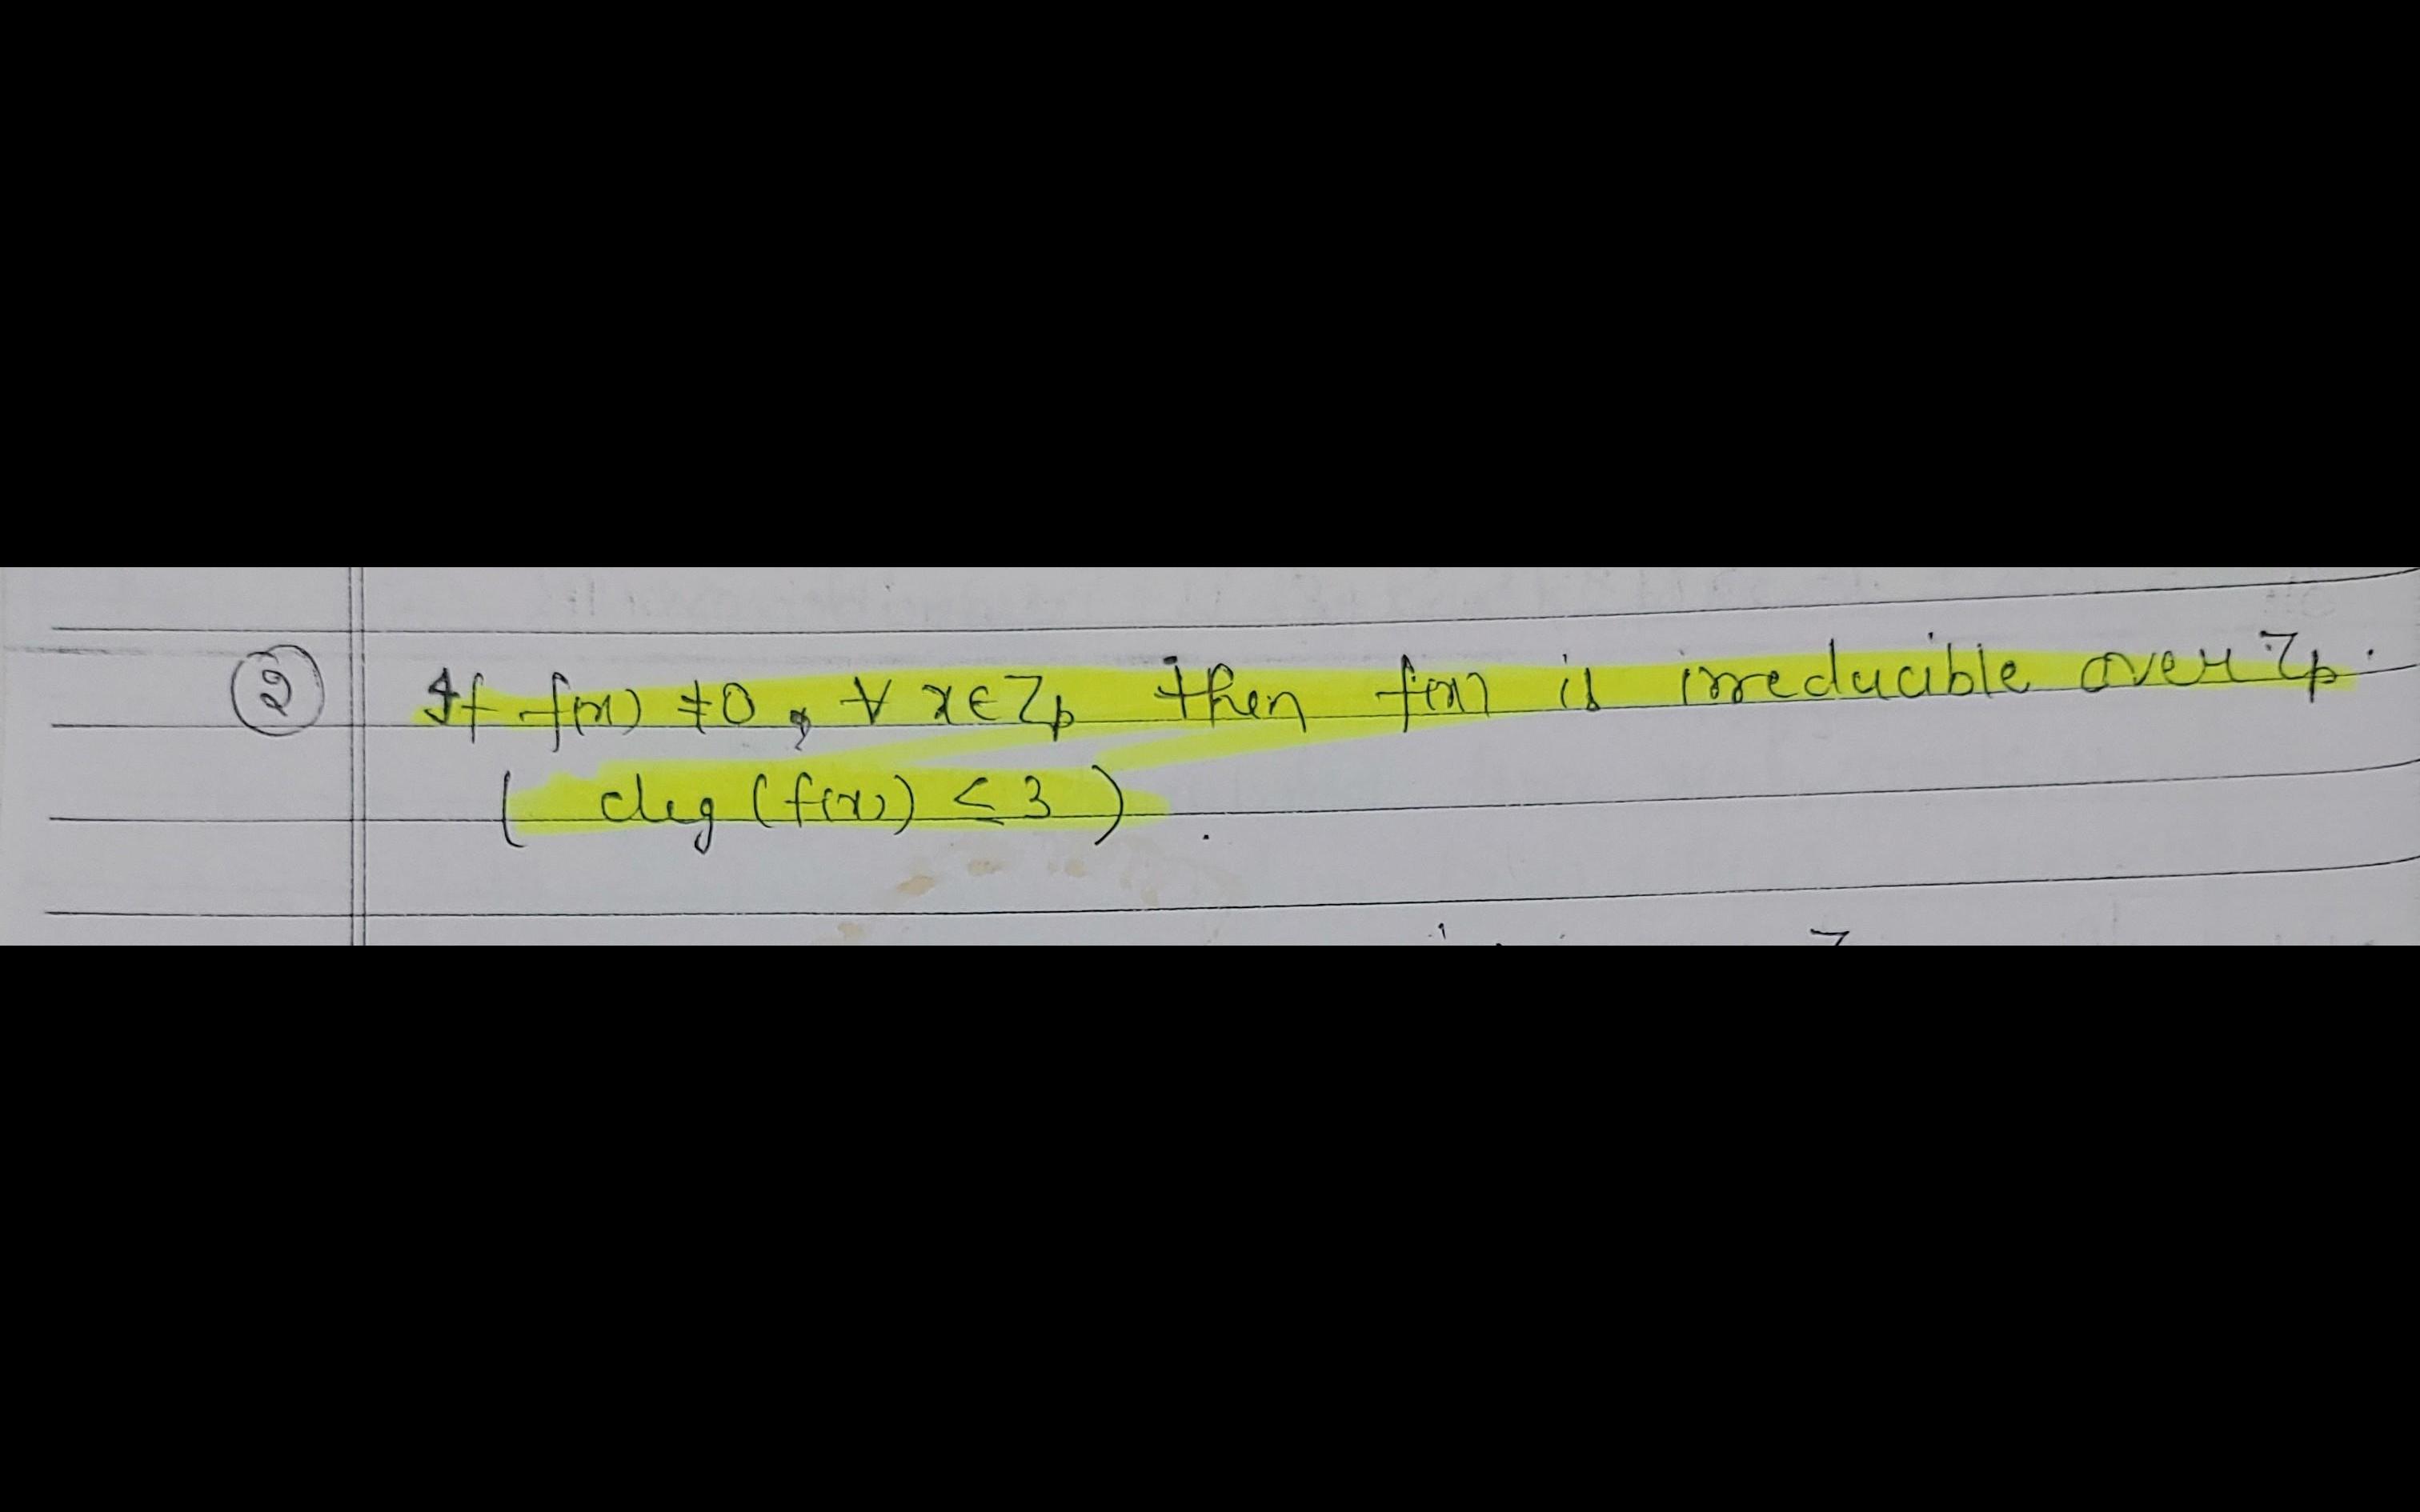 ② If f(x) ≠ 0, ∀ x ∈ Zp then f(x) is irreducible over Zp.
( deg (f(x)) ≤ 3 ).